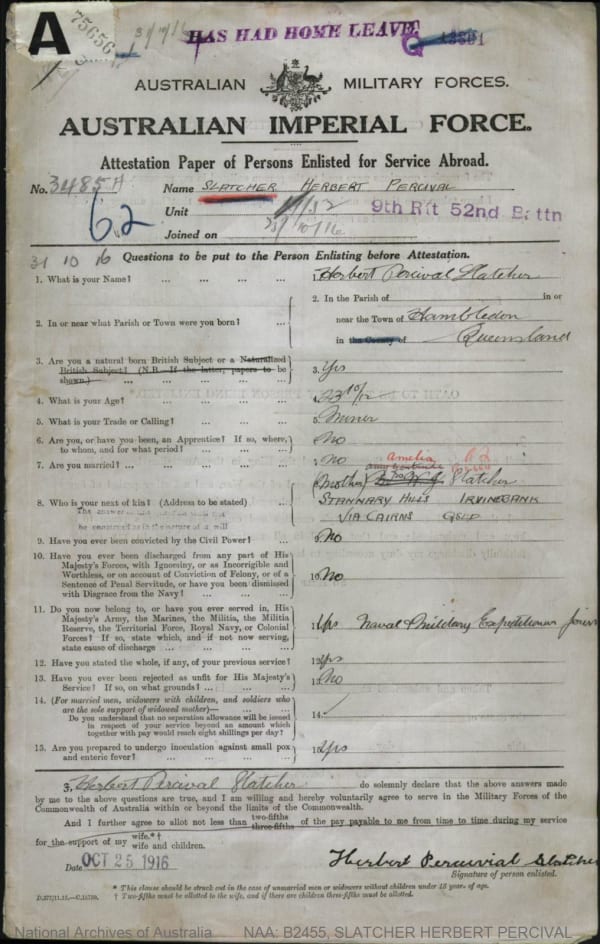 A
75656
31/10/16
HAS HAD HOME LEAVE
AUSTRALIAN MILITARY FORCES.
AUSTRALIAN IMPERIAL FORCE.
Attestation Paper of Persons Enlisted for Service Abroad.
No. 3485A Name SLATCHER HERBERT PERCIVAL
62
Unit 9/52 9th Rft 52nd Battn
Joined on 25/10/16
31 10 16 Questions to be put to the Person Enlisting before Attestation.
1. What is your Name? ... 1. Herbert Percival Slatcher
2. In or near what Parish or Town were you born? ... 2. In the Parish of in or
near the Town of Hambledon
in the County of Queensland
3. Are you a natural born British Subject or a Naturalized
British Subject? (N.B.—If the latter, papers to be
shown.) ... 3. Yes
4. What is your Age? ... 4. 23 10/12
5. What is your Trade or Calling? ... 5. Miner
6. Are you, or have you been, an Apprentice? If so, where,
to whom, and for what period? ... 6. No
7. Are you married? ... 7. No
Amelia
8. Who is your next of kin? (Address to be stated) (Mother) Slatcher
STANNARY HILLS IRVINEBANK
VIA CAIRNS QSLD
9. Have you ever been convicted by the Civil Power? ... 9. No
10. Have you ever been discharged from any part of His
Majesty's Forces, with Ignominy, or as Incorrigible and
Worthless, or on account of Conviction of Felony, or of a
Sentence of Penal Servitude, or have you been dismissed
with Disgrace from the Navy? ... 10. No
11. Do you now belong to, or have you ever served in, His
Majesty's Army, the Marines, the Militia, the Militia
Reserve, the Territorial Force, Royal Navy, or Colonial
Forces? If so, state which, and if not now serving,
state cause of discharge ... 11. Yes Naval & Military Expeditionary
12. Have you stated the whole, if any, of your previous service? 12. Yes
13. Have you ever been rejected as unfit for His Majesty's
Service? If so, on what grounds? ... 13. No
14. (For married men, widowers with children, and soldiers who
are the sole support of widowed mother)—
Do you understand that no separation allowance will be issued
in respect of your service beyond an amount which
together with pay would reach eight shillings per day? 14.
15. Are you prepared to undergo inoculation against small pox
and enteric fever? ... 15. Yes
I, Herbert Percival Slatcher do solemnly declare that the above answers made
by me to the above questions are true, and I am willing and hereby voluntarily agree to serve in the Military Forces of the
Commonwealth of Australia within or beyond the limits of the Commonwealth.
And I further agree to allot not less than two-fifths three-fifths of the pay payable to me from time to time during my service
for the support of my wife.*† wife and children.
Date OCT 25 1916
Herbert Percivial Slatcher
Signature of person enlisted.
* This clause should be struck out in the case of unmarried men or widowers without children under 18 years of age.
† Two-fifths must be allotted to the wife, and if there are children three-fifths must be allotted.
National Archives of Australia NAA: B2455, SLATCHER HERBERT PERCIVAL